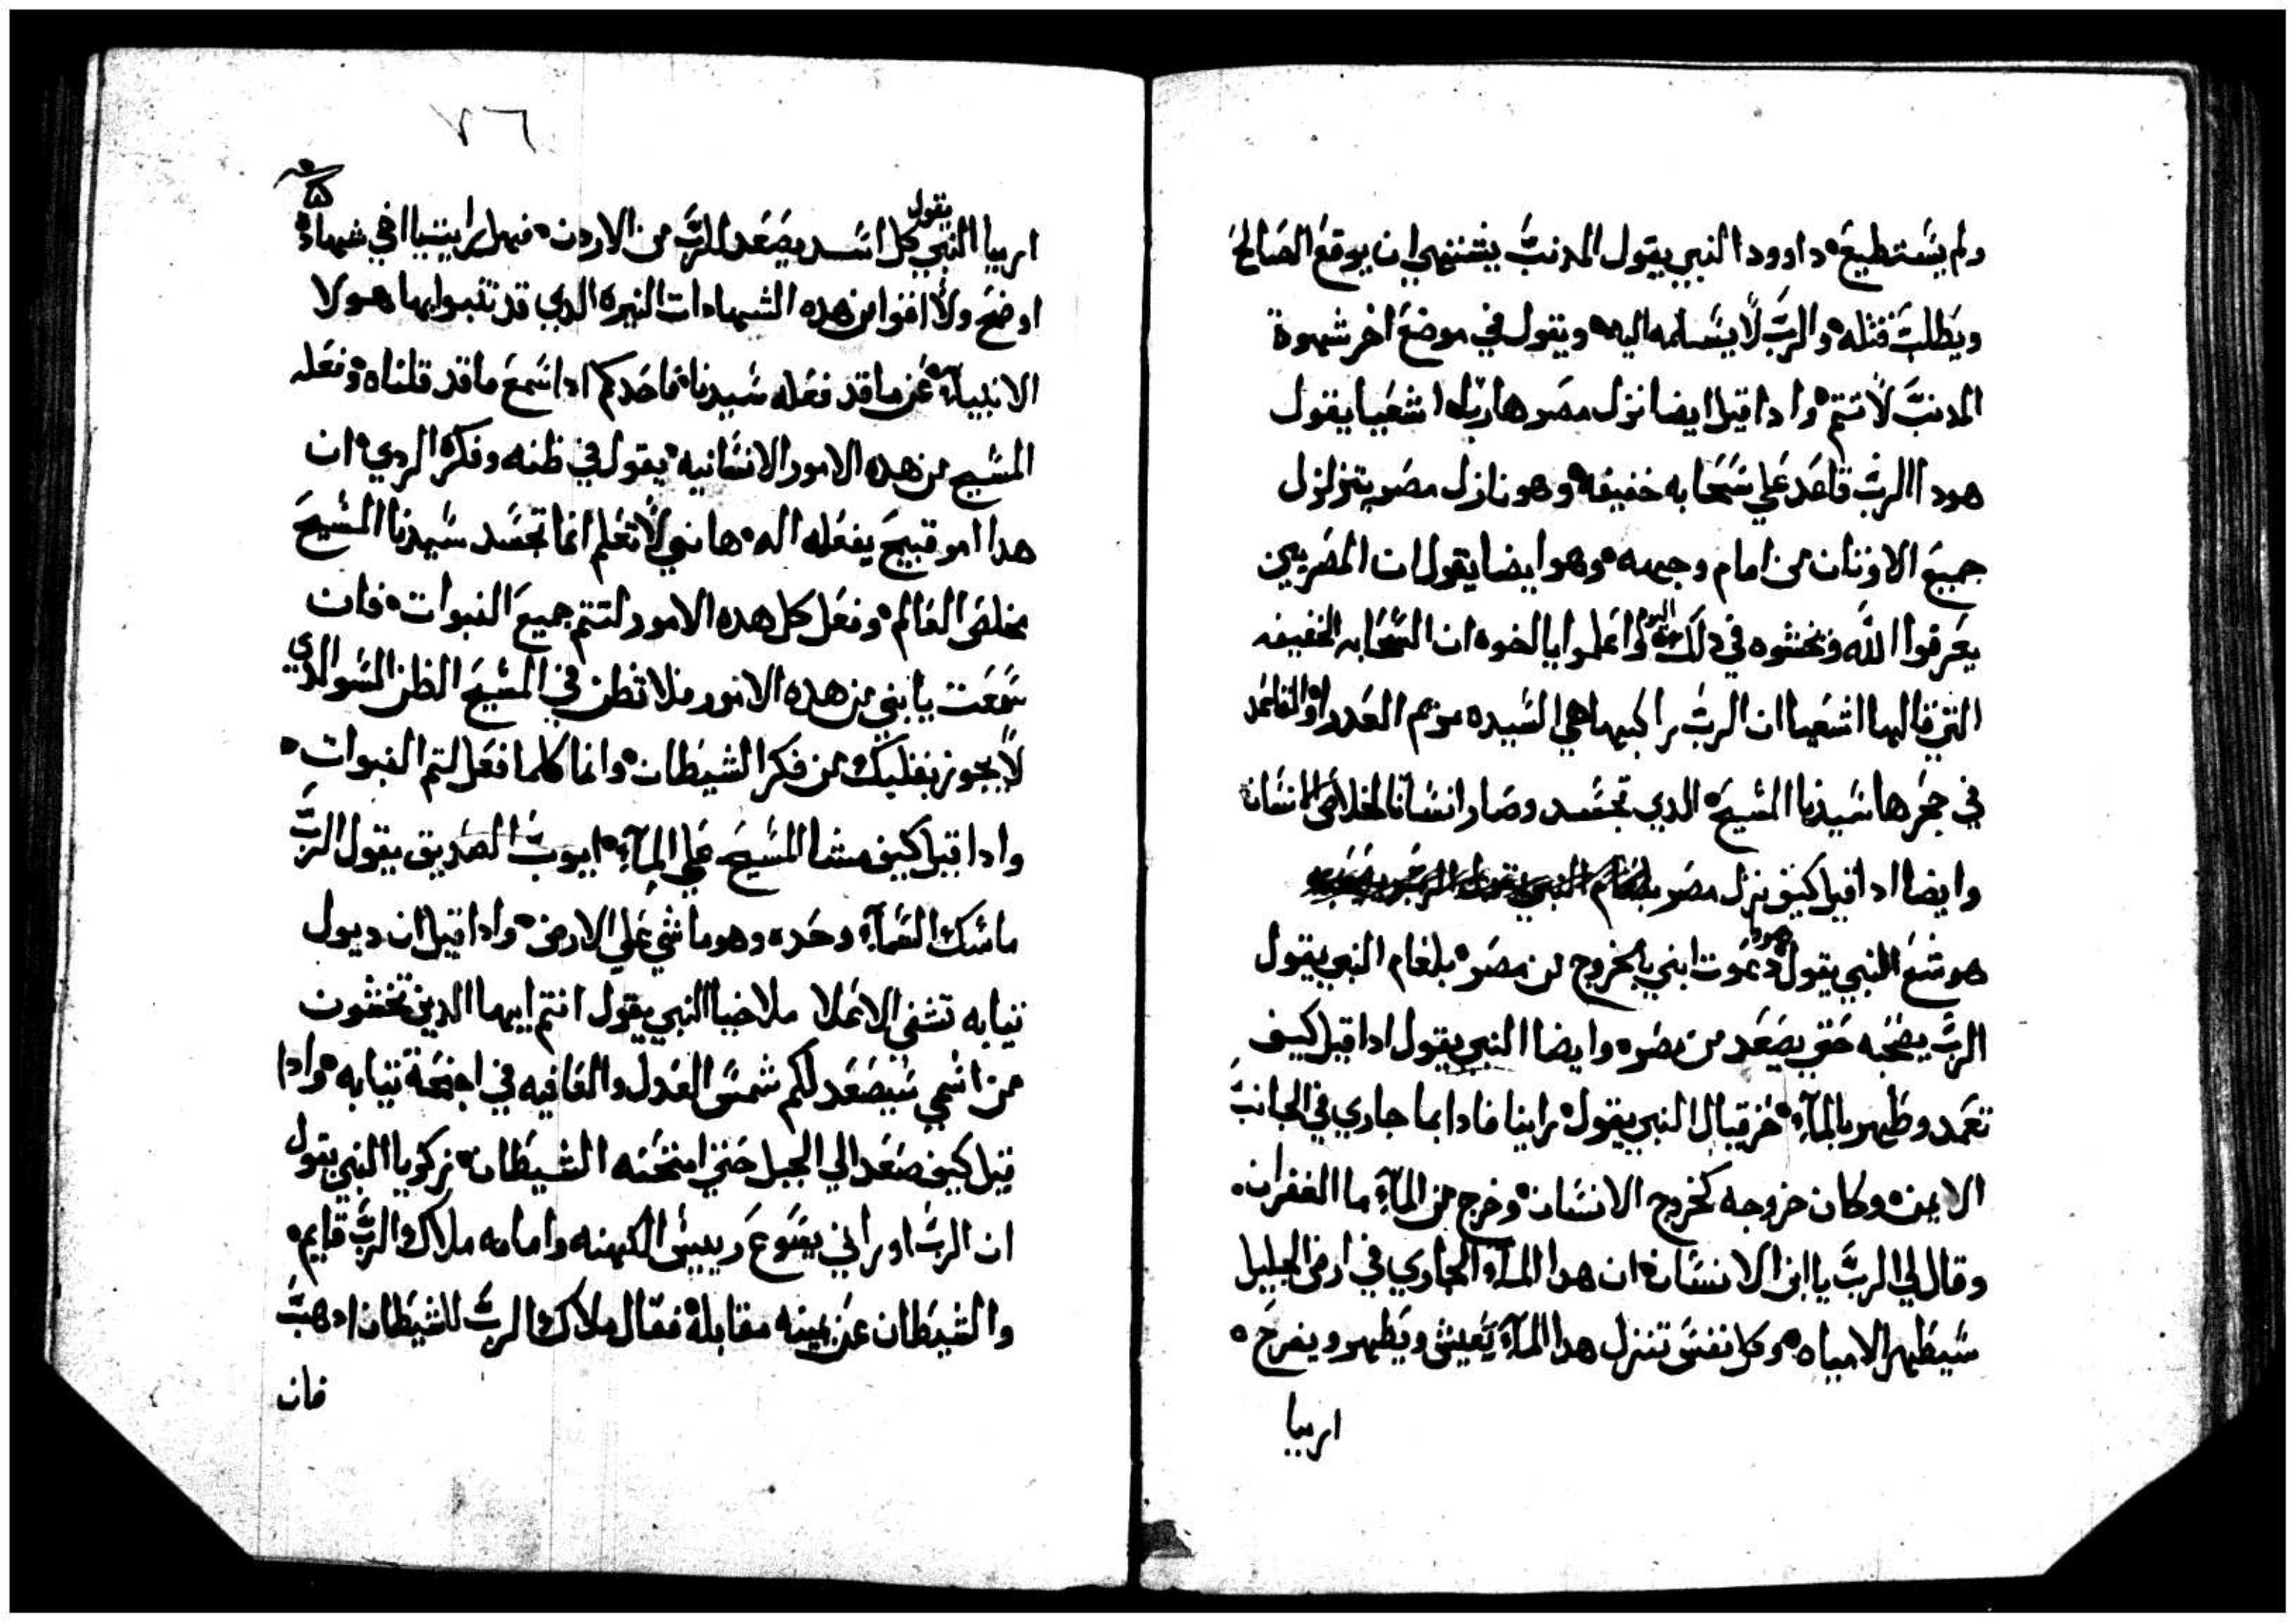 ولم يستطيع داوود النبي يقول المدنب يشتهي ان يوقع الصالح
ويطلب قتله والرب لا يسلمه اليه ويقول في موضع اخر شهوة
المدنب لا تتم وادا قيل ايضا نزل مصر هاربا اشعيا يقول
هودا الرب قاعد علي سحابه خفيفه وهو نازل مصر يتزلزل
جميع الاوتان من امام وجهه وهو ايضا يقول ان المصريين
يعرفوا الله ويخشوه في دلك اليوم واعلموا يا اخوه ان السحابه الخفيفه
التي قالها اشعيا ان الرب راكبها هي السيده مريم العدرا
في حجرها سيدنا المسيح الدي تجسد وصار انسانا لخلاص الانسان
وايضا ادا قيل كيف نزل مصر
هوشع النبي يقول هودا دعوت ابني بالخروج من مصر بلعام النبي يقول
الرب يصحبه حتي يصعد من مصر وايضا النبي يقول ادا قيل كيف
تعمد وطهر بالمآء حزقيال النبي يقول راينا فادا بما جاري في الجانب
الايمن وكان خروجه كخروج الانسان وخرج من المآء ما الغفران
وقال لي الرب يا ابن الانسان ان هدا المآء الجاري في ارض الجليل
سيطهر الامياه وكل نفس تنزل هدا المآء يعيش ويطهر ويفرح
ارميا
٧٦
ارميا النبي يقول كل اسد يصعد للرب من الاردن فهل رايتم يا اخي شهاده
اوضح ولا اقوا من هده الشهادات النيره الدي قد تنبوا بها هولا
الانبيآء عن ما قد فعله سيدنا فاحدكم ادا سمع ما قد قلناه وفعله
المسيح من هده الامور الانسانيه يقول في ظنه وفكره الردي ان
هدا امر قبيح يفعله اله ها نبي لا تعلم انما تجسد سيدنا المسيح
يخلص العالم وفعل كل هده الامور لتتم جميع النبوات فان
سمعت يا بني من هده الامور فلا تظن في المسيح الظن السو الدي
لا يجوز بقلبك من فكر الشيطان وانما كلما فعل لتتم النبوات
وادا قيل كيف مشا المسيح علي المآء ايوب الصديق يقول الرب
ماسك السمآء وحده وهو ماشي علي الارض وادا قيل ان ديول
تيابه تشفي الاعلا ملاخيا النبي يقول انتم ايها الدين تخشون
من اسمي سيصعد لكم شمس العدل والعافيه في اجنحة تيابه وادا
قيل كيف صعد الي الجبل حتي امتحنه الشيطان زكريا النبي يقول
ان الرب اوراني يسوع رييس الكهنه وامامه ملاك الرب قايم
والشيطان عن يمينه مقابله فقال ملاك الرب للشيطان ادهب
فان